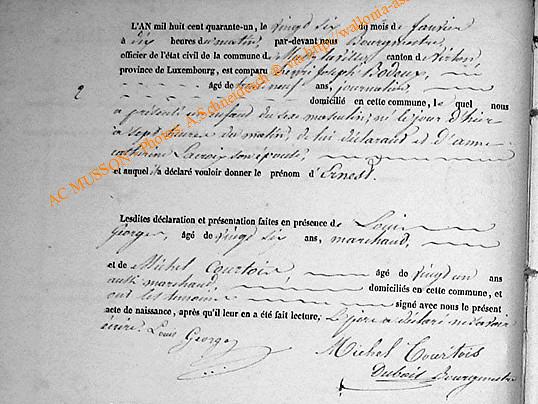 L'AN mil huit cent quarante-un, le vingt six du mois de Janvier
à dix heures du matin, par-devant nous Bourgmestre
officier de l'état civil de la commune de canton de Virton,
province de Luxembourg, est comparu Henri Joseph Bodoux,
âgé de neuf ans, journalier
2 domicilié en cette commune, le quel nous
a présenté un enfant du sexe masculin, né le jour d'hier
à sept heures du matin, de lui déclarant et d'anne
catherine Lacroix son épouse,
et auquel a déclaré vouloir donner le prénom d'Ernest.
Lesdites déclaration et présentation faites en présence de Louis
George, âgé de vingt six ans, marchand,
et de Michel Courtois âgé de vingt un ans
aussi marchand, domiciliés en cette commune, et
ont les témoins signé avec nous le présent
acte de naissance, après qu'il leur en a été fait lecture, le père a déclaré ne savoir
écrire. Louis George
Michel Courtois
Dubois Bourgmestre
AC MUSSON - Photos A.Schneidesch @ via http://wallonia-as